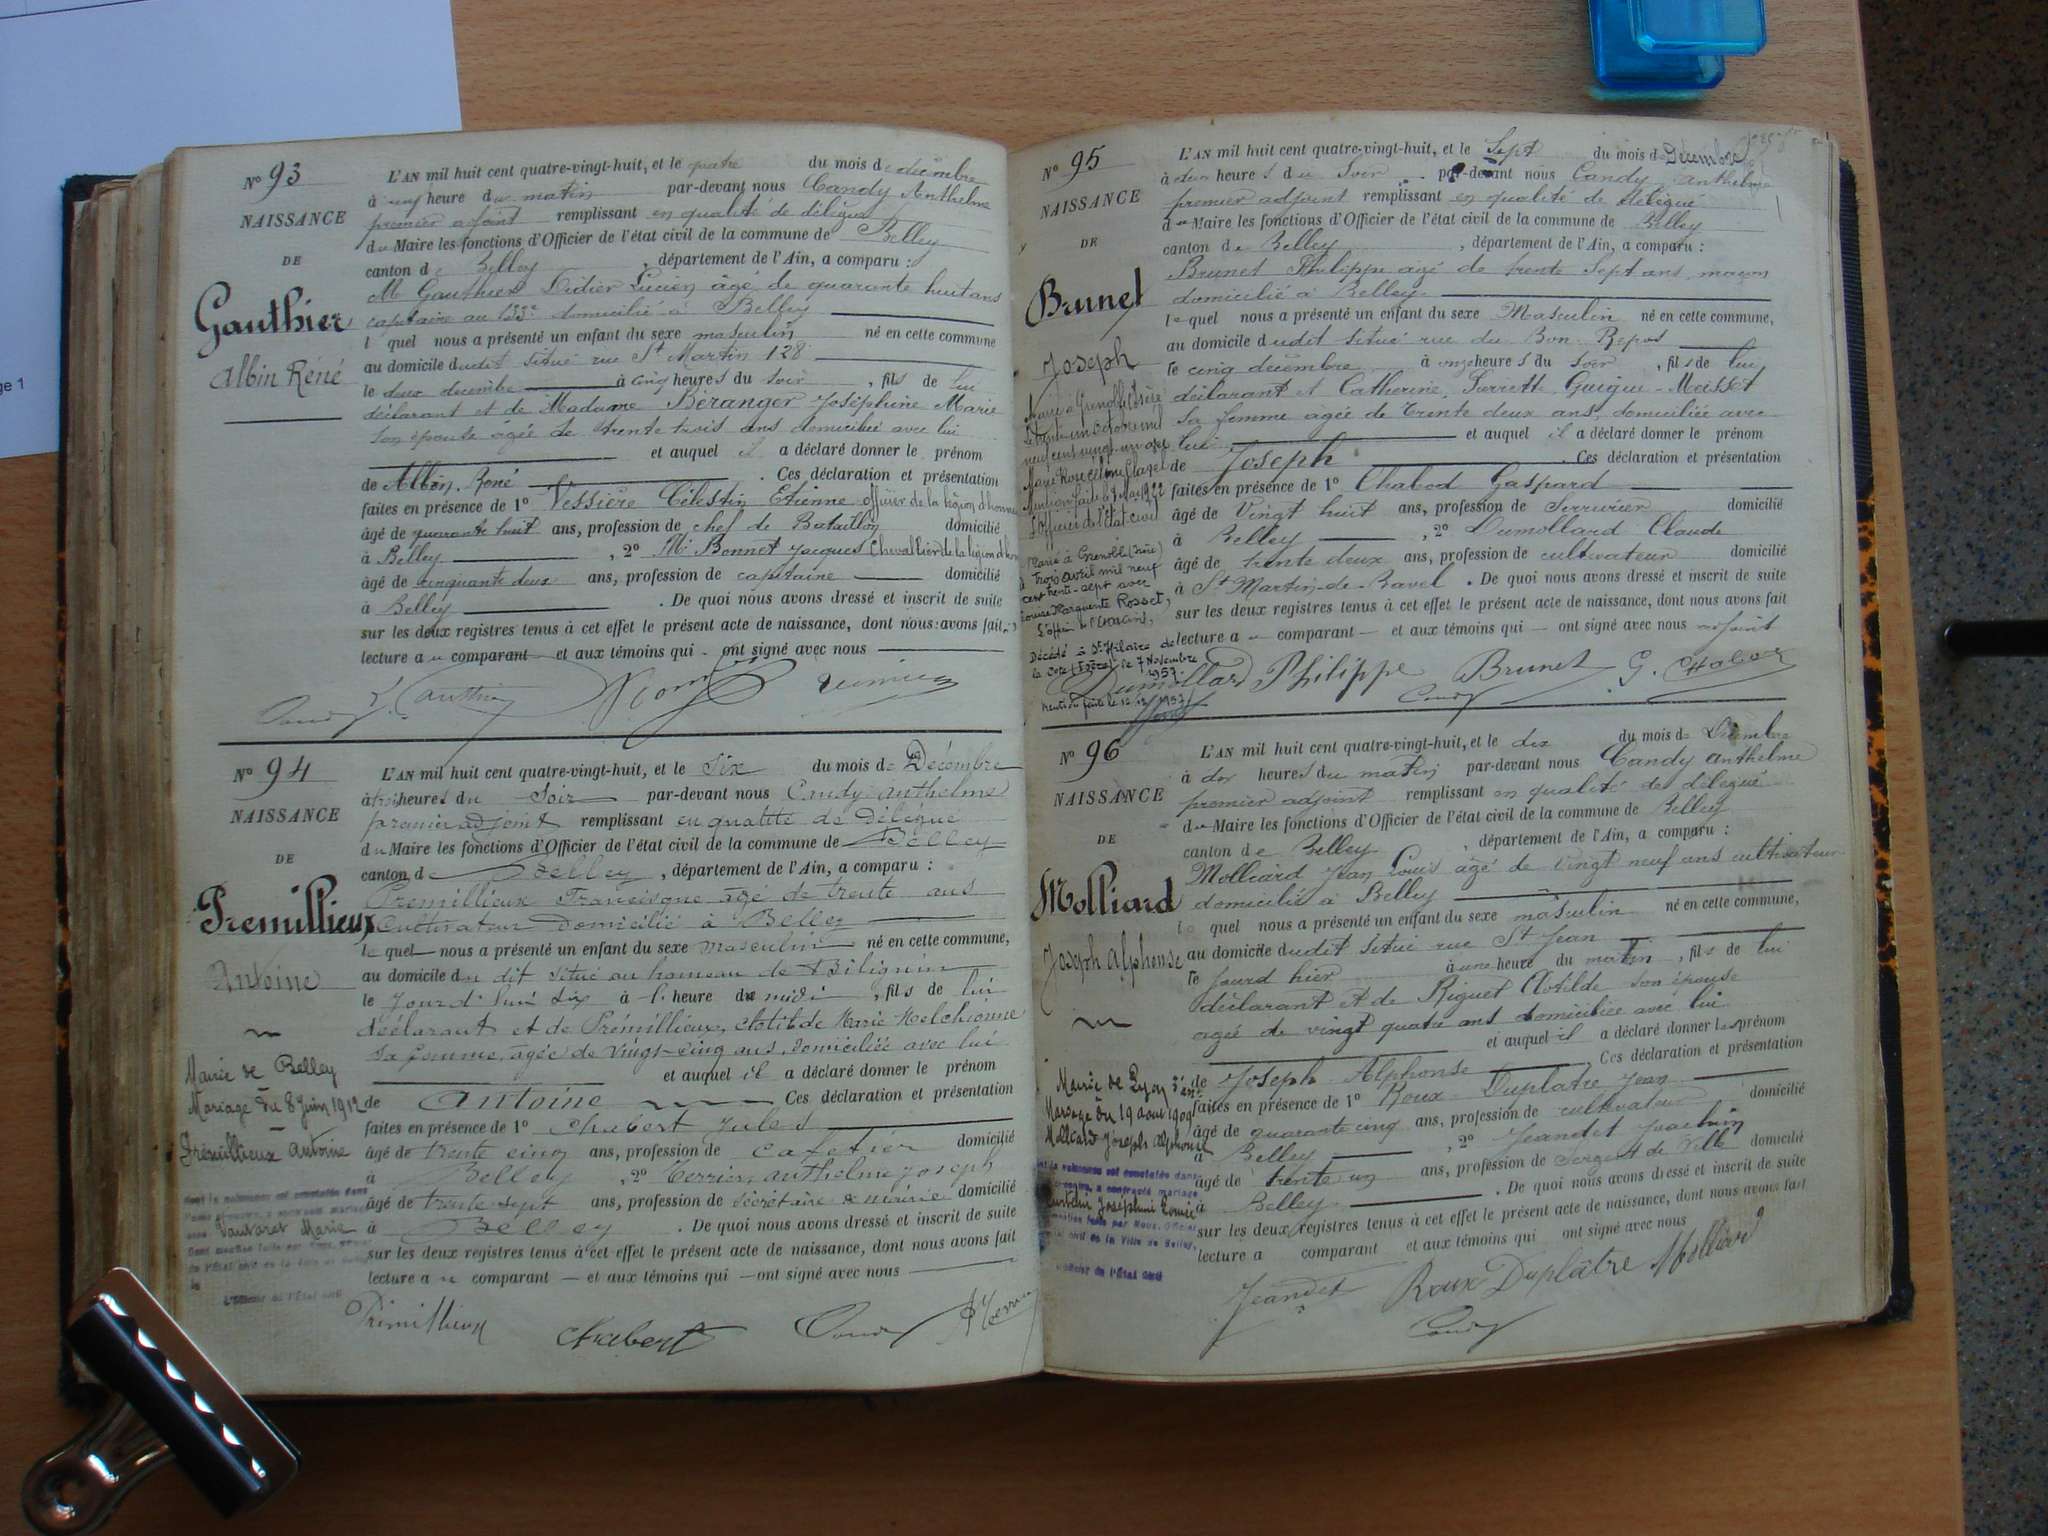 ge 1
Nº 93
NAISSANCE
DE
Gauthier
Albin Réné
L'AN mil huit cent quatre-vingt-huit, et le quatre du mois de décembre
à heure du matin par-devant nous Candy Anthelme
premier adjoint remplissant en qualité de délégué
du Maire les fonctions d'Officier de l'état civil de la commune de Belley
canton de Belley, département de l'Ain, a comparu :
Mr Gauthier Didier Lucien âgé de quarante huit ans
capitaine au 133e domicilié à Belley
l quel nous a présenté un enfant du sexe masculin né en cette commune
au domicile dudit situé rue St Martin 128
le deux décembre à cinq heures du soir, fils de lui
déclarant et de Madame Béranger Joséphine Marie
son épouse âgée de trente trois ans domiciliée avec lui
et auquel il a déclaré donner le prénom
de Albin René. Ces déclaration et présentation
faites en présence de 1º Vessière Célestin Etienne officier de la légion d'honneur
âgé de quarante huit ans, profession de chef de Bataillon domicilié
à Belley, 2º Mr Bonnet Jacques Chevallier de la légion d'hon
âgé de cinquante deux ans, profession de capitaine domicilié
à Belley. De quoi nous avons dressé et inscrit de suite
sur les deux registres tenus à cet effet le présent acte de naissance, dont nous avons fait
lecture au comparant et aux témoins qui ont signé avec nous
Candy L. Gauthier
Nº 94
NAISSANCE
DE
Premillieux
Antoine
Mairie de Belley
Mariage du 8 Juin 1912
Premillieux Antoine
dont la naissance est constatée dans
Vautaret Marie
L'Officier de l'État civil
L'AN mil huit cent quatre-vingt-huit, et le six du mois de Décembre
à heures du Soir par-devant nous Candy Anthelme
premier adjoint remplissant en qualité de Délégué
du Maire les fonctions d'Officier de l'état civil de la commune de Belley
canton d Belley, département de l'Ain, a comparu :
Premillieux Francisque âgé de trente ans
Cultivateur Domicilié à Belley
le quel nous a présenté un enfant du sexe masculin né en cette commune,
au domicile du dit situé au hameau de Bilignin
le jourd'hui six à l'heure de midi, fils de lui
déclarant et de Prémillieux, Clotilde Marie Melchionne
sa femme, âgée de vingt-cinq ans, domiciliée avec lui
et auquel il a déclaré donner le prénom
de Antoine Ces déclaration et présentation
faites en présence de 1º Chabert Jules
âgé de trente cinq ans, profession de cafetier domicilié
à Belley, 2º Terrier, anthelme joseph
âgé de trente sept ans, profession de secrétaire de mairie domicilié
à Belley. De quoi nous avons dressé et inscrit de suite
sur les deux registres tenus à cet effet le présent acte de naissance, dont nous avons fait
lecture au comparant — et aux témoins qui — ont signé avec nous
Primillieux Chabert Candy
Nº 95
NAISSANCE
DE
Brunet
Joseph
Marié à Grenoble (Isère)
le trente un octobre mil
neuf cent vingt-un avec
Mention faite le 8 Mai 1922
L'Officier de l'état civil
Marié à Grenoble (Isère)
trois avril mil neuf
cent trente-sept avec
Louise Marguerite Rosset,
Décédé à St Hilaire de
la Côte (Isère) le 7 Novembre
1957
Mention faite le 12/12/1957
L'AN mil huit cent quatre-vingt-huit, et le Sept du mois de Décembre
à deux heures du Soir par-devant nous Candy Anthelme
premier adjoint remplissant en qualité de délégué
du Maire les fonctions d'Officier de l'état civil de la commune de Belley
canton de Belley, département de l'Ain, a comparu :
Brunet Philippe âgé de trente Sept ans, maçon
domicilié à Belley
le quel nous a présenté un enfant du sexe Masculin né en cette commune,
au domicile dudit situé rue du Bon Repos
le cinq décembre à onze heures du soir, fils de lui
déclarant et Catherine, Pierrette, Guigue-Meisset
sa femme âgée de trente deux ans, domiciliée avec
lui et auquel il a déclaré donner le prénom
de Joseph. Ces déclaration et présentation
faites en présence de 1º Chabod Gaspard
âgé de Vingt huit ans, profession de Serrurier domicilié
à Belley, 2º Dumollard Claude
âgé de trente deux ans, profession de cultivateur domicilié
à St Martin-de-Bavel. De quoi nous avons dressé et inscrit de suite
sur les deux registres tenus à cet effet le présent acte de naissance, dont nous avons fait
lecture au comparant — et aux témoins qui — ont signé avec nous adjoint
Dumollard Philippe Brunet G. Chabod
Candy
Nº 96
NAISSANCE
DE
Molliard
Joseph Alphonse
Mairie de Lyon 3e arr.
Mariage du 19 août 1909
Molliard Joseph Alphonse
dont la naissance est constatée dans
Joséphine
L'Officier de l'État civil
L'AN mil huit cent quatre-vingt-huit, et le dix du mois de Décembre
à dix heures du matin par-devant nous Candy Anthelme
premier adjoint remplissant en qualité de délégué
du Maire les fonctions d'Officier de l'état civil de la commune de Belley
canton de Belley, département de l'Ain, a comparu :
Molliard Jean Louis âgé de vingt neuf ans cultivateur
domicilié à Belley
le quel nous a présenté un enfant du sexe masculin né en cette commune,
au domicile dudit situé rue St Jean
le jourd hier à une heure du matin, fils de lui
déclarant et de Riguet Clotilde son épouse
agée de vingt quatre ans domiciliée avec lui
et auquel il a déclaré donner les prénom
de Joseph Alphonse Ces déclaration et présentation
faites en présence de 1º Roux Duplatre Jean
âgé de quarante cinq ans, profession de cultivateur domicilié
à Belley, 2º Jeandet Joachim
âgé de trente un ans, profession de Sergent de Ville domicilié
à Belley. De quoi nous avons dressé et inscrit de suite
sur les deux registres tenus à cet effet le présent acte de naissance, dont nous avons fait
lecture a comparant et aux témoins qui ont signé avec nous
Jeandet Roux Duplâtre Molliard
Candy